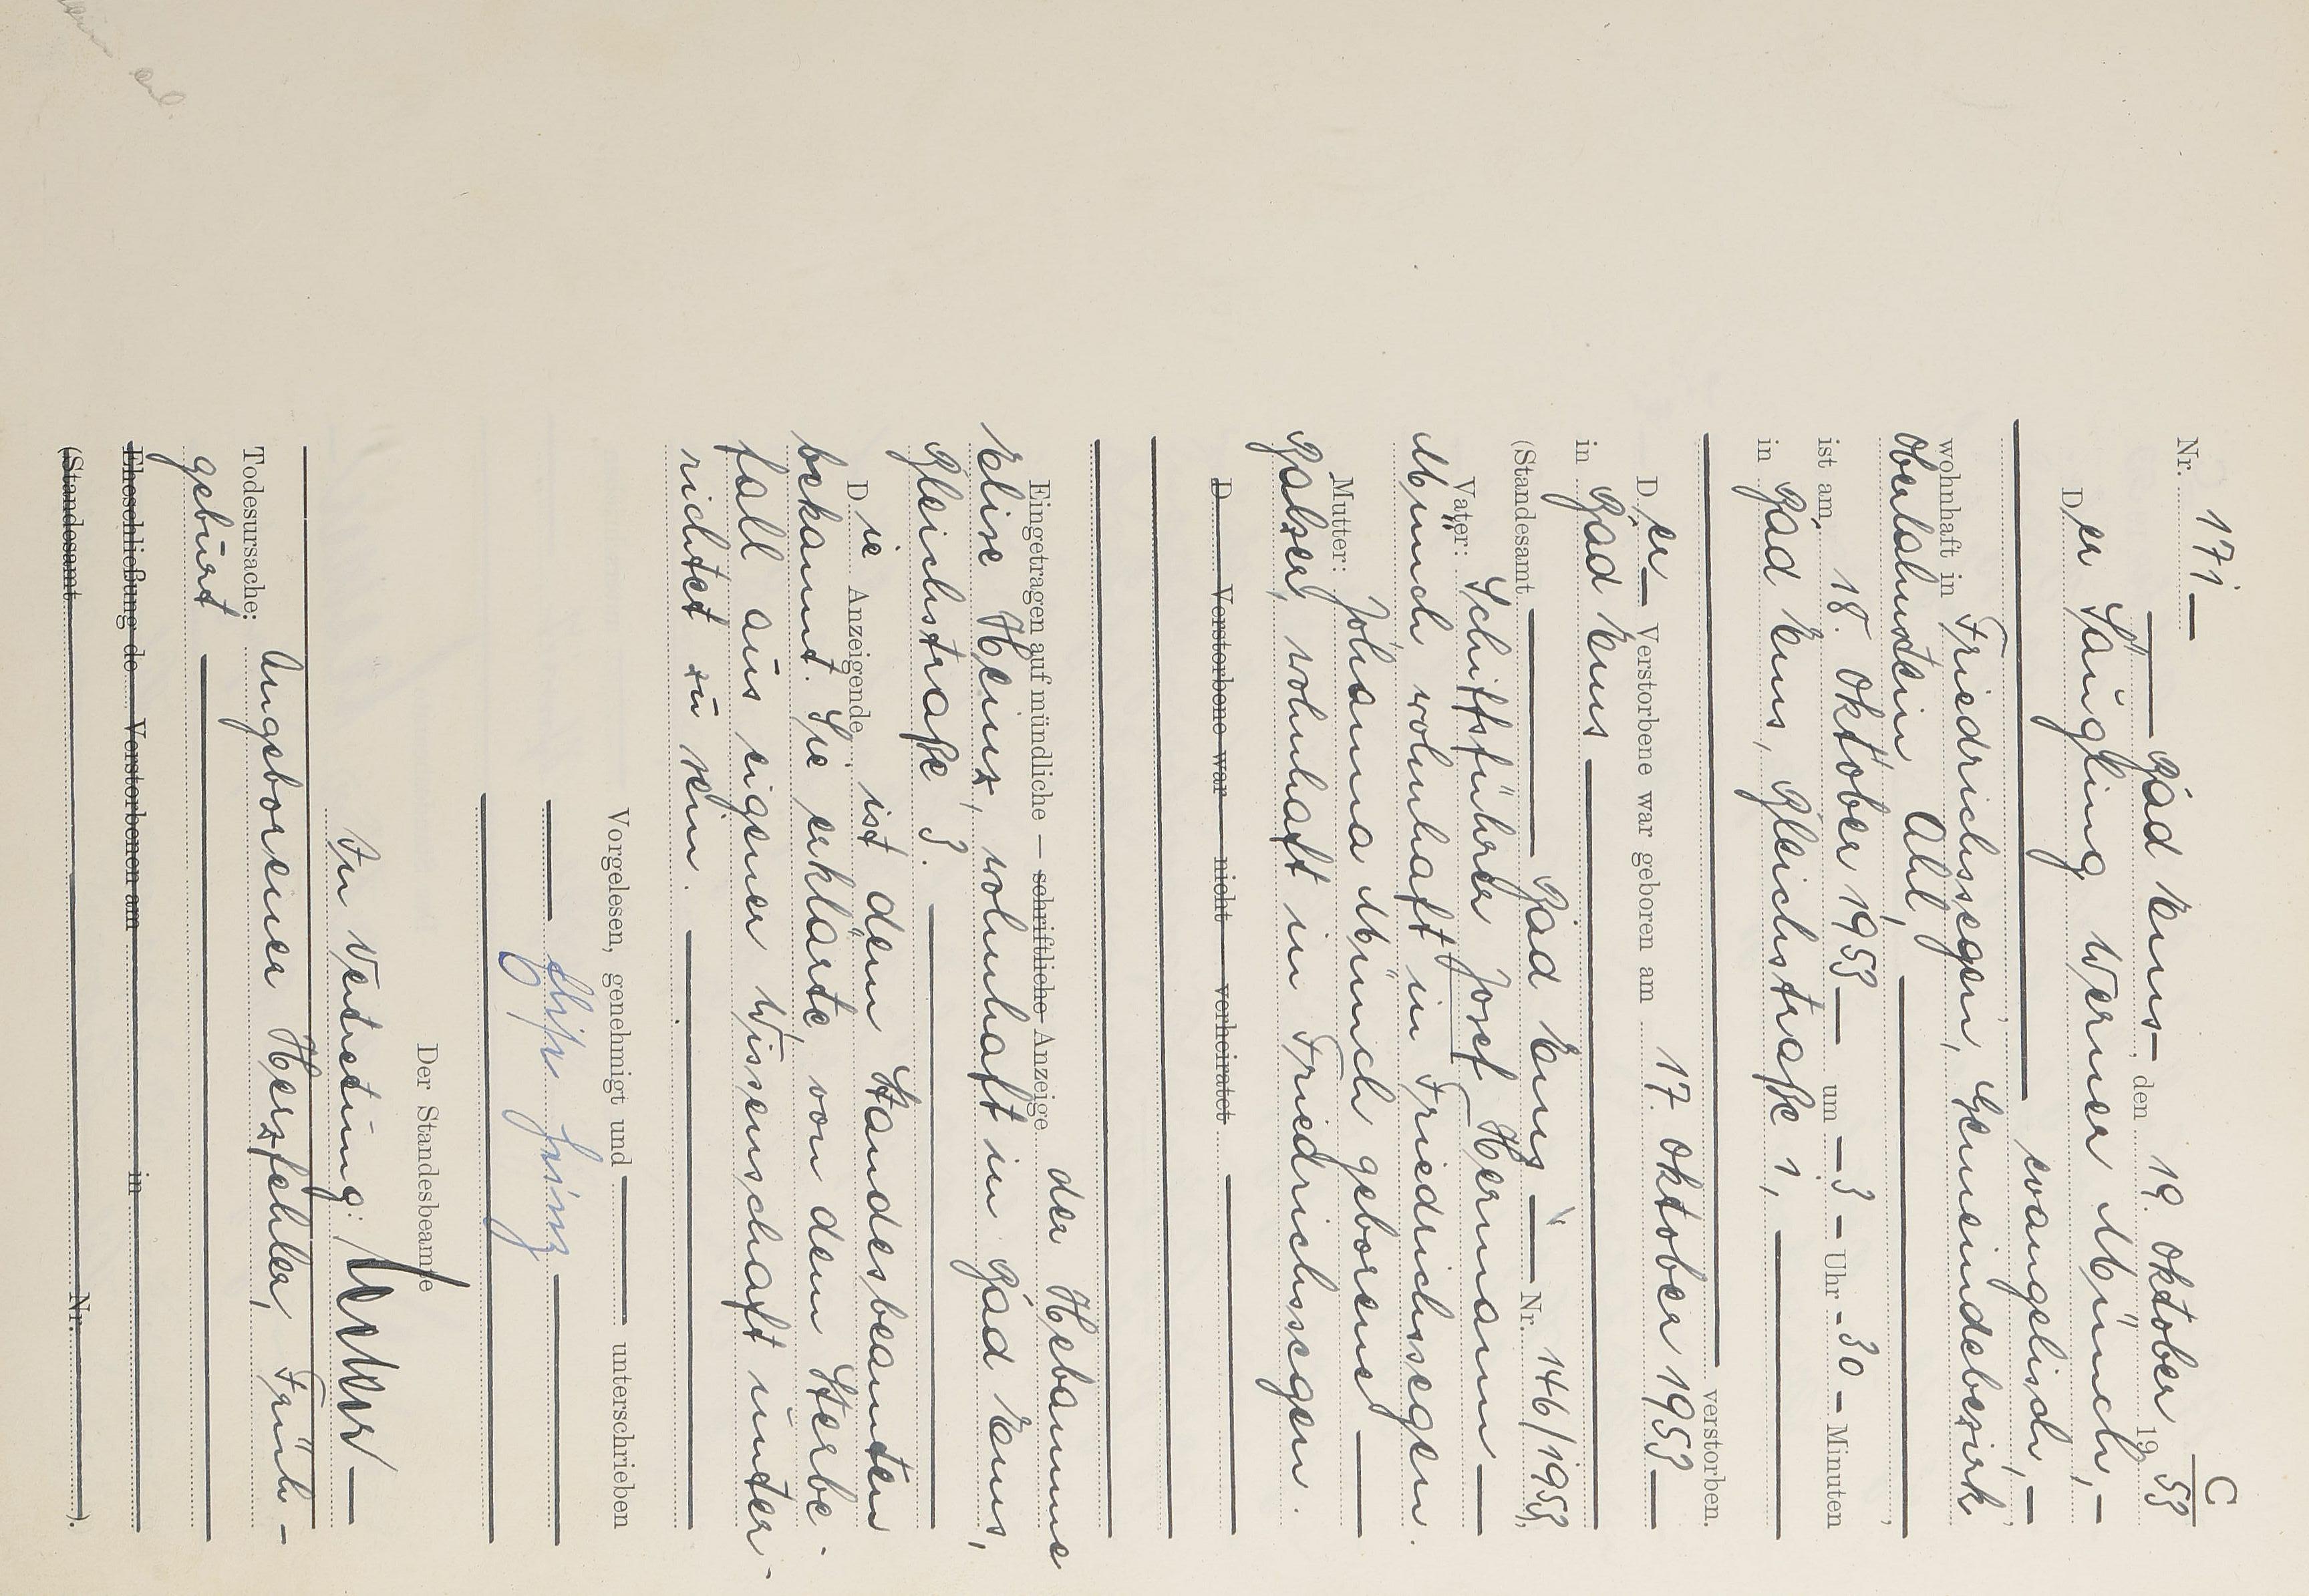 C
Nr. 171
Bad Ems, den 19. Oktober 19 53
Der Säugling Werner Münch,
evangelisch,
wohnhaft in Friedrichssegen, Gemeindebezirk
Oberlahnstein Ahl,
ist am 18. Oktober 1953 um 3 Uhr 30 Minuten
in Bad Ems, Bleichstraße 1,
verstorben.
Der Verstorbene war geboren am 17. Oktober 1953
in Bad Ems
(Standesamt Bad Ems Nr. 146/1953),
Vater: Schiffsführer Josef Hermann
Münch wohnhaft in Friedrichssegen.
Mutter: Johanna Münch geborene
Balzer, wohnhaft in Friedrichssegen.
D Verstorbene war nicht verheiratet
Eingetragen auf mündliche – schriftliche Anzeige der Hebamme
Elise Heinz, wohnhaft in Bad Ems,
Bleichstraße 3.
Die Anzeigende ist dem Standesbeamten
bekannt. Sie erklärte, von dem Sterbe-
fall aus eigner Wissenschaft unter-
richtet zu sein.
Vorgelesen, genehmigt und unterschrieben
Elise Heinz
Der Standesbeamte
In Vertretung:
Todesursache: Angeborener Herzfehler, Früh-
geburt
Eheschließung de Verstorbenen am in
(Standesamt Nr. ).